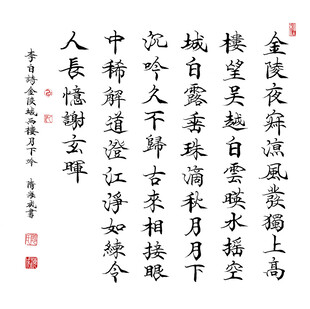 金陵夜寂涼風發獨上高
樓望吳越白雲暎水搖空
城白露垂珠滴秋月月下
沉吟久不歸古來相接眼
中稀解道澄江淨如練令
人長憶謝玄暉
李白詩金陵城西樓月下吟 書